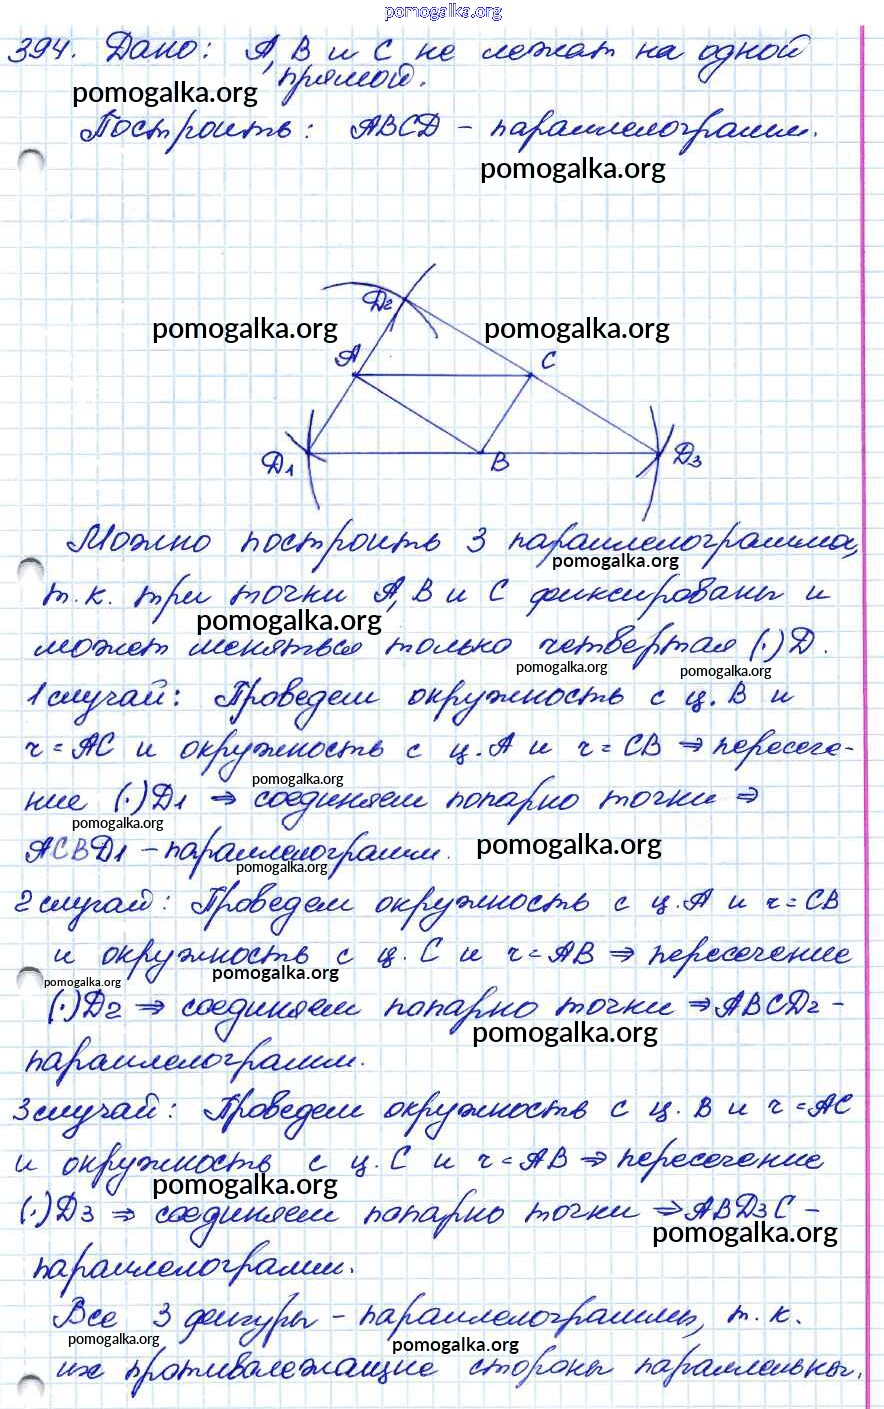 pomogalka.org
394. Дано: А, В и С не лежат на одной
прямой.
pomogalka.org
Построить: ABCD - параллелограмм.
pomogalka.org
D2
pomogalka.org pomogalka.org
A C
D1 B D3
Можно построить 3 параллелограмма,
pomogalka.org
т.к. три точки А, В и С фиксированы и
pomogalka.org
может меняться только четвертая (·) D.
pomogalka.org pomogalka.org
1 случай: Проведем окружность с ц. В и
r = AC и окружность с ц. А и r = CB ⇒ пересече-
pomogalka.org
ние (·) D1 ⇒ соединяем попарно точки ⇒
pomogalka.org
ACBD1 - параллелограмм. pomogalka.org
pomogalka.org
2 случай: Проведем окружность с ц. А и r = CB
и окружность с ц. С и r = AB ⇒ пересечение
pomogalka.org pomogalka.org
(·) D2 ⇒ соединяем попарно точки ⇒ ABCD2 -
pomogalka.org
параллелограмм.
3 случай: Проведем окружность с ц. В и r = AC
и окружность с ц. С и r = AB ⇒ пересечение
pomogalka.org
(·) D3 ⇒ соединяем попарно точки ⇒ ABD3C -
pomogalka.org
параллелограмм.
Все 3 фигуры - параллелограммы, т.к.
pomogalka.org pomogalka.org
их противолежащие стороны параллельны.